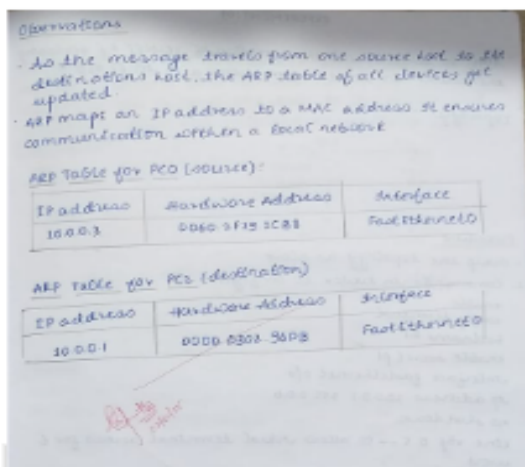 Observations
· As the message travels from one source host to the
destinations host, the ARP table of all devices get
updated.
· ARP maps an IP address to a MAC address It ensures
communication within a local network
ARP Table for PC0 (source):
IP address Hardware Address Interface
10.0.0.3 FastEthernet0
ARP Table for PC2 (destination)
IP address Hardware Address Interface
10.0.0.1 FastEthernet0